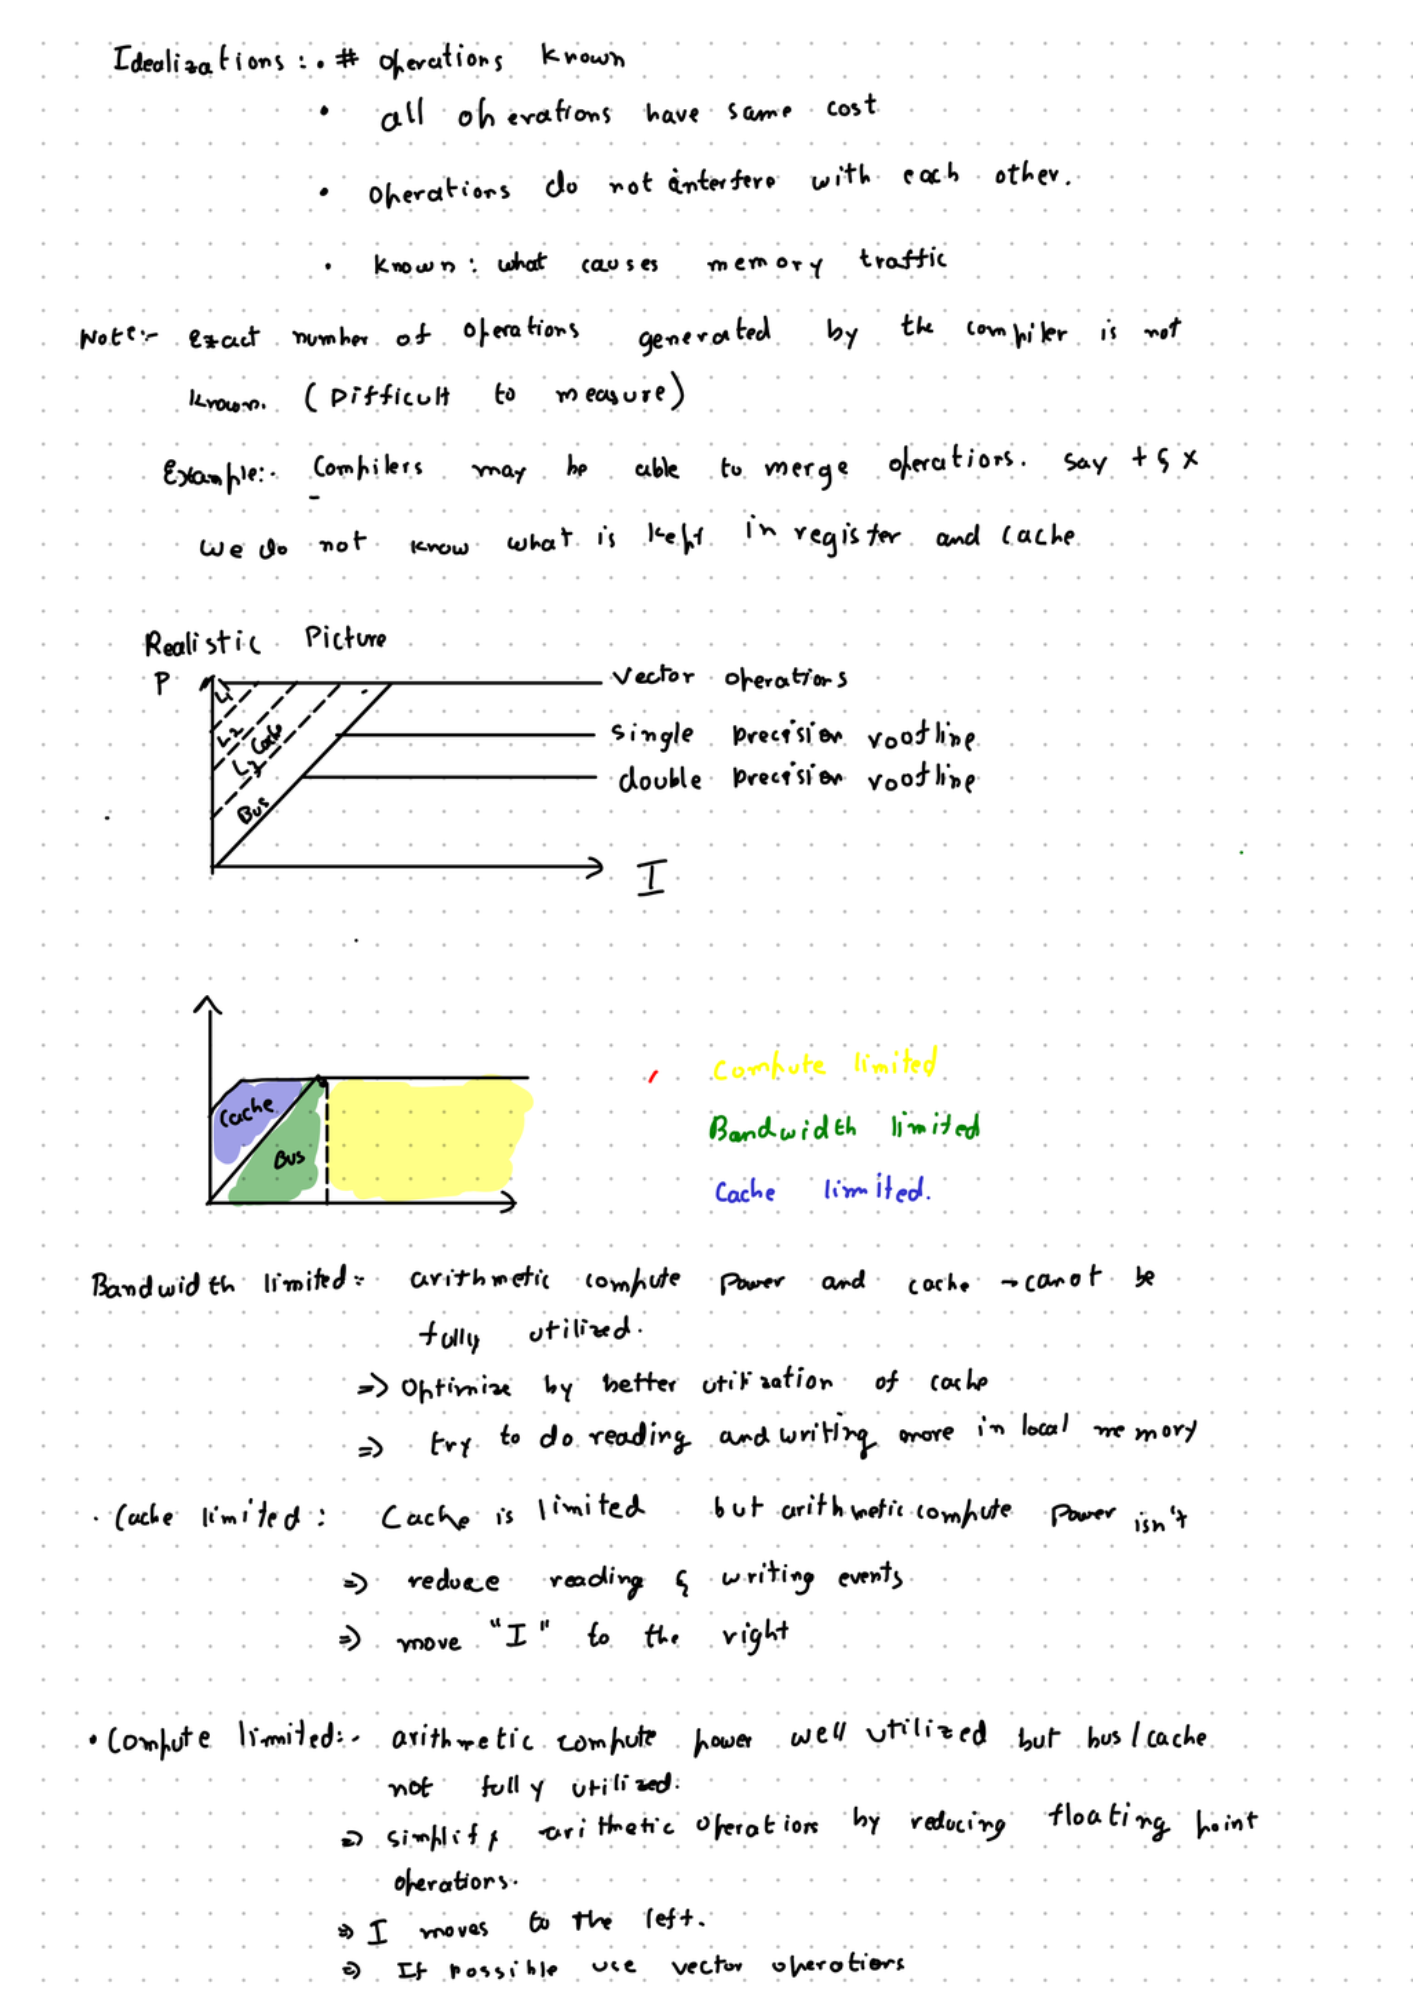 Idealizations : • # operations known
• all operations have same cost
• operations do not interfere with each other.
• known : what causes memory traffic
Note:- Exact number of operations generated by the compiler is not
known. (Difficult to measure)
Example:- Compilers may be able to merge operations. say + & x
we do not know what is kept in register and cache
Realistic Picture
P
L1
L2
L3 Cache
Bus
vector operations
single precision roofline
double precision roofline
I
Cache
Bus
compute limited
Bandwidth limited
Cache limited.
Bandwidth limited: arithmetic compute power and cache → canot be
fully utilized.
=> Optimize by better utilization of cache
=> try to do reading and writing more in local memory
• Cache limited : Cache is limited but arithmetic compute power isn't
=> reduce reading & writing events
=> move "I" to the right
• Compute limited:- arithmetic compute power well utilized but bus/cache
not fully utilized.
=> simplify arithetic operation by reducing floating point
operations.
=> I moves to the left.
=> If possible use vector operations